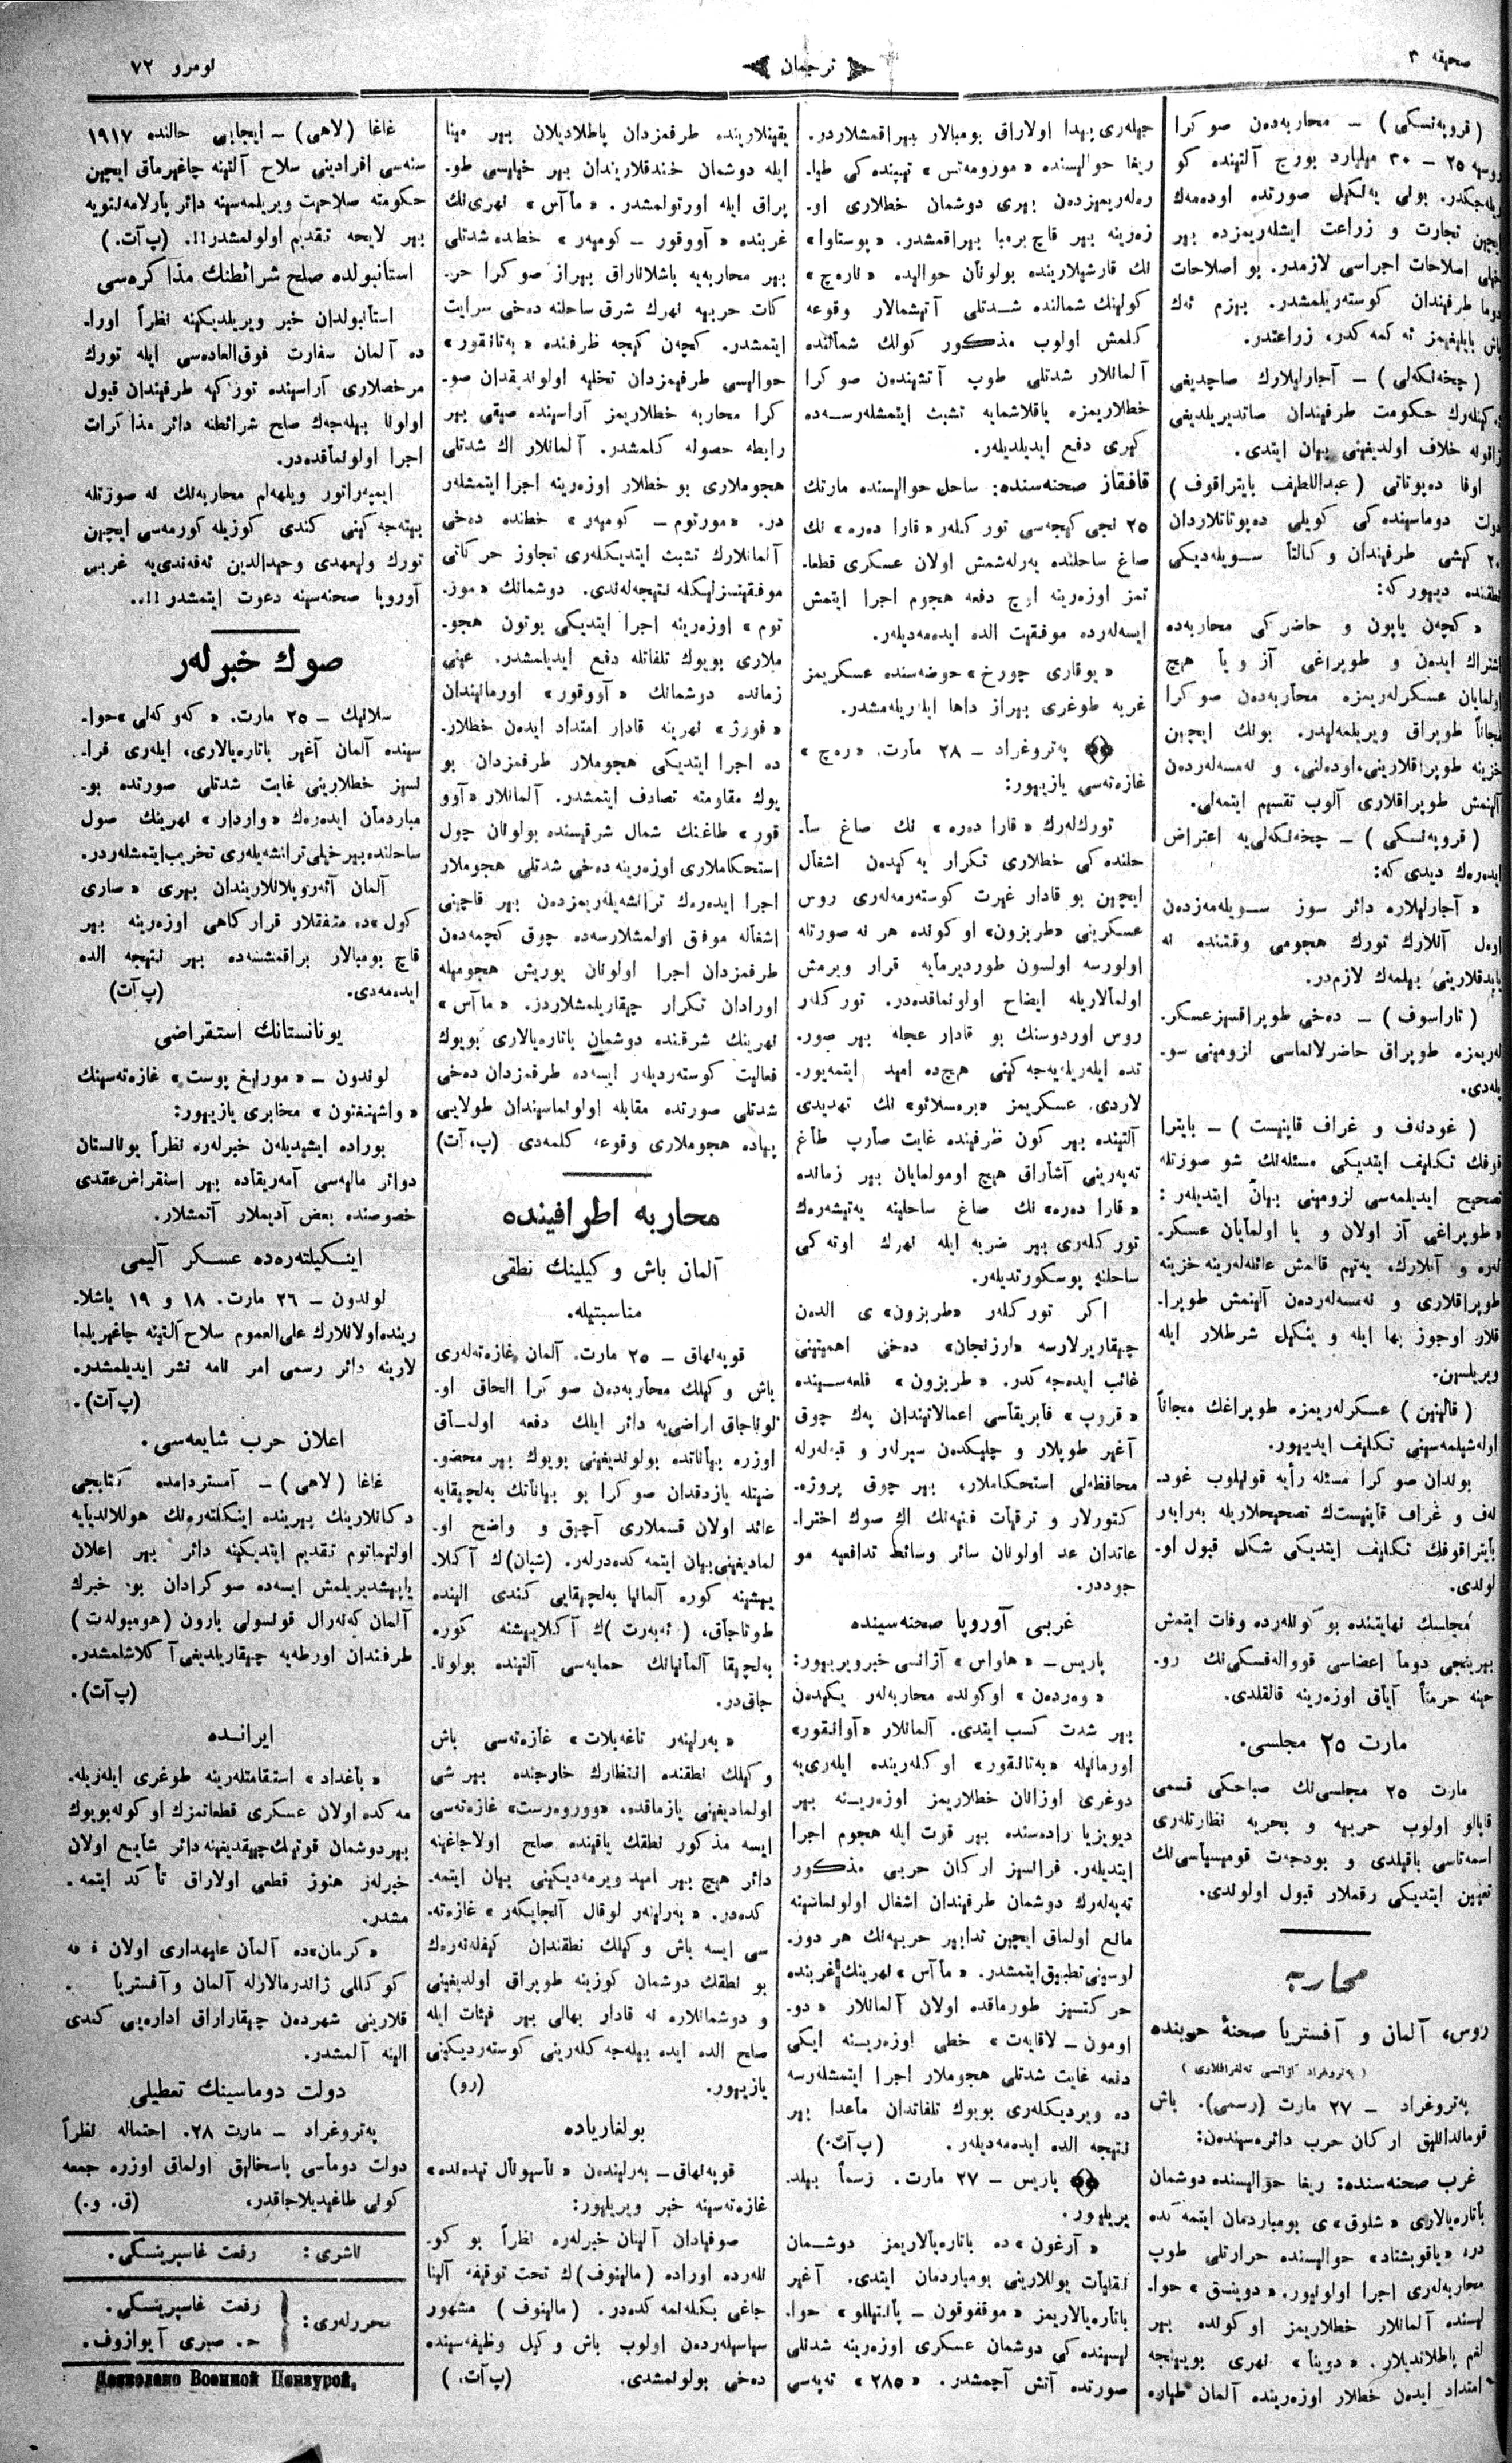 صحیفه ۳
ترجمان
نومرو ۷۲
(قروپه‌نسکی) – محاربه‌دن صوکرا
روسیه ۲۵ – ۳۰ میلیارد بورج آلتینده کو
ریله‌جکدر. بونی یه‌نگیل صورتده اوده‌مه‌ك
ایچین تجارت و زراعت ایشله‌ریمزده بیر
خیلی اصلاحات اجراسی لازمدر. بو اصلاحات
دوما طرفیندان کوسته‌ریلمشدر. بیزم ئه‌ك
باش بایلیغیمز ئه کمه کدر، زراعتدر.
(چخه‌نکه‌لی) – آجارلیلارك صاچدیغی
حکومت طرفیندان صاتدیریلدیغی
خلاف اولدیغینی بیان ایتدی.
اوفا ده‌پوتاتی (عبداللطیف بایتراقوف)
دولت دوماسینده کی کویلی ده‌پوتاتلاردان
۲۰ کیشی طرفیندان وکالتاً سویله‌دیکی
نطقنده دییور که:
«کچه‌ن یاپون و حاضرکی محاربه‌ده
اشتراك ایده‌ن و طوپراغی آز و یا هیچ
اولمایان عسکرله‌ریمزه محاربه‌دن صوکرا
مجاناً طوپراق ویریلمه‌لیدر. بونك ایچین
خزینه طوپراقلارینی، اوده‌لنی، و نه‌مسه‌له‌ردن
آلینمش طوپراقلاری آلوب تقسیم ایتمه‌لی.
(قروپه‌نسکی) – چخه‌نکه‌لی‌یه اعتراض
ایده‌ره‌ك دیدی که:
«آجارلیلاره دائر سوز سویله‌مه‌زدن
اول آنلارك تورك هجومی وقتنده نه
یاپدقلارینی بیلمه‌ك لازم‌در.
(تاراسوف) – ده‌خی طوپراقسیز عسکر-
له‌ریمزه طوپراق حاضرلانماسی لزومینی سو-
یله‌دی.
(غودنه‌ف و غراف قاپنیست) – بایترا
قوفك تکلیف ایتدیکی مسئله‌نك شو صورتله
تصحیح ایدیلمه‌سی لزومینی بیان ایتدیله‌ر:
«طوپراغی آز اولان و یا اولمایان عسکر-
له‌ره و آنلارك، یه‌تیم قالمش عائله‌له‌رینه خزینه
طوپراقلاری و نه‌مسه‌له‌ردن آلینمش طوپرا-
قلار اوجوز بها ایله و ینگیل شرطلار ایله
ویریلسین.
(قالینین) عسکرله‌ریمزه طوپراغك مجاناً
اوله‌شیلمه‌سینی تکلیف ایدییور.
بوندان صوکرا مسئله رأیه قونیلوب غود-
نه‌ف و غراف قاپنیست‌ك تصحیحلاریله به‌رابه‌ر
بایتراقوفك تکلیف ایتدیکی شکل قبول او-
لوندی.
مجلسك نهایتنده بو کونله‌رده وفات ایتمش
بیرینجی دوما اعضاسی قوواله‌فسکی‌نك رو-
حینه حرمتاً آیاق اوزه‌رینه قالقلدی.
مارت ۲۵ مجلسی.
مارت ۲۵ مجلسی‌نك صباحکی قسمی
قاپالو اولوب حربیه و بحریه نظارتله‌ری
اسمه‌تاسی باقیلدی و بودجه‌ت قومیسیاسی‌نك
تعیین ایتدیکی رقملار قبول اولوندی.
محاربه
روس، آلمان و آفستریا صحنهٔ حربنده
(په‌تروغراد آژانسی ته‌لغرافلاری)
په‌تروغراد – ۲۷ مارت (رسمی). باش
قومانداننلیق ارکان حرب دائره‌سیندن:
غرب صحنه‌سنده: ریغا حوالیسنده دوشمان
باتاره‌یالاری «شلوق»ی بومباردمان ایتمه کده
در. «یاقوبشتاد» حوالیسنده حرارتلی طوپ
محاربه‌له‌ری اجرا اولونیور. «دوینسق» حوا-
لیسنده آلمانلار خطلاریمز اوکنده بیر
لغم پاطلاتدیلار. «دوینا» نهری بویینجه
امتداد ایده‌ن خطلار اوزه‌رینده آلمان طیاره
جیله‌ری پیدا اولاراق بومبالار بیراقمشلاردر.
ریغا حوالیسنده «مورومه‌تس» تیپنده کی طیا-
ره‌له‌ریمزدن بیری دوشمان خطلاری او-
زه‌رینه بیر قاچ بومبا بیراقمشدر. «پوستاوا»
نك قارشیلارینده بولونان حوالیده «ناروچ»
کولینك شمالنده شدتلی آتیشمالار وقوعه
کلمش اولوب مذکور کولك شمالنده
آلمانلار شدتلی طوپ آتشیندن صوکرا
خطلاریمزه یاقلاشمایه تشبث ایتمشله‌رسه‌ده
کیری دفع ایدیلدیله‌ر.
قافقاز صحنه‌سنده: ساحل حوالیسنده مارتك
۲۵ نجی کیجه‌سی تورکله‌ر «قارا دره» نك
صاغ ساحلنده یه‌رله‌شمش اولان عسکری قطعا-
تمز اوزه‌رینه اوچ دفعه هجوم اجرا ایتمش
ایسه‌له‌رده موفقیت الده ایده‌مه‌دیله‌ر.
«یوقاری چورخ» حوضه‌سنده عسکریمز
غربه طوغری بیراز داها ایله‌ریله‌مشدر.
په‌تروغراد – ۲۸ مارت. «ره‌چ»
غازه‌ته‌سی یازییور:
تورك‌له‌رك «قارا ده‌ره» نك صاغ سا-
حلنده کی خطلاری تکرار یه‌کیدن اشغال
ایچین بو قادار غیرت کوسته‌رمه‌له‌ری روس
عسکرینی «طربزون» اوکونده هر نه صورتله
اولورسه اولسون طوردیرمایه قرار ویرمش
اولمالاریله ایضاح اولونماقده‌در. تورکله‌ر
روس اوردوسنك بو قادار عجله بیر صور-
تده ایله‌ریله‌یه‌جه کینی هیچ‌ده امید ایتمه‌یور-
لاردی. عسکریمز «بره‌سلاو» نك تهدیدی
آلتینده بیر کون ظرفینده غایت صارپ طاغ
ته‌په‌رینی آشاراق هیچ اومولمایان بیر زمانده
«قارا ده‌ره» نك صاغ ساحلینه یه‌تیشه‌ره‌ك
تورکله‌ری بیر ضربه ایله نهرك اوته کی
ساحلنه پوسکورتدیله‌ر.
اکر تورکله‌ر «طربزون» ی الدن
چیقاریرلارسه «ارزنجان» ده‌خی اهمیتینی
غائب ایده‌جه کدر. «طربزون» قلعه‌سینده
«قروپ» فابریقاسی اعمالاتیندان په‌ك چوق
آغیر طوپلار و چلیکدن سپرله‌ر و قبه‌له‌رله
محافظه‌لی استحکاملار، بیر چوق پروژه-
کتورلار و ترقیات فنیه‌نك اك صوك اخترا-
عاتندان عد اولونان سائر وسائط تدافعیه مو
جوددر.
غربی آوروپا صحنه‌سینده
پاریس – «هاواس» آژانسی خبر ویرییور:
«وه‌ردون» اوکونده محاربه‌له‌ر یکیدن
بیر شدت کسب ایتدی. آلمانلار «آوانقور»
اورمانیله «به‌تانقور» اوکله‌رینده ایله‌ری‌یه
دوغری اوزانان خطلاریمز اوزه‌رینه بیر
دیویزیا راده‌سنده بیر قوت ایله هجوم اجرا
ایتدیله‌ر. فرانسیز ارکان حربی مذکور
ته‌په‌له‌رك دوشمان طرفیندان اشغال اولونماسینه
مانع اولماق ایچین تدابیر حربیه‌نك هر دور-
لوسینی تطبیق ایتمشدر. «ماآس» نهرینك غربنده
حرکتسیز طورماقده اولان آلمانلار «دو-
اومون – لاقایه‌ت» خطی اوزه‌رینه ایکی
دفعه غایت شدتلی هجوملار اجرا ایتمشله‌رسه
ده ویردیکله‌ری بویوك تلفاتدان ماعدا بیر
نتیجه الده ایده‌مه‌دیله‌ر. (پ آت.)
پاریس – ۲۷ مارت. رسماً بیلد-
یریلیور.
«آرغون» ده باتاره‌یالاریمز دوشمان
نقلیات یوللارینی بومباردمان ایتدی. آغیر
باتاره‌یالاریمز «موقفوقون – پانتیللو» حوا-
لیسنده کی دوشمان عسکری اوزه‌رینه شدتلی
صورتده آتش آچمشدر. «۲۸۵» ته‌په‌سی
یقینلارینده طرفمزدان پاطلادیلان بیر مینا
ایله دوشمان خندقلاریندان بیر خیلیسی طو-
پراق ایله اورتولمشدر. «ماآس» نهری‌نك
غربنده «آووقور – کومیه‌ر» خطده شدتلی
بیر محاربه‌یه باشلاناراق بیراز صوکرا حر-
کات حربیه نهرك شرق ساحلنه ده‌خی سرایت
ایتمشدر. کچه‌ن کیجه ظرفنده «به‌تانقور»
حوالیسی طرفیمزدان تخلیه اولوندیقدان صو-
کرا محاربه خطلاریمز آراسینده صیقی بیر
رابطه حصوله کلمشدر. آلمانلار اك شدتلی
هجوملاری بو خطلار اوزه‌رینه اجرا ایتمشله‌ر
در. «مورتوم – کومیه‌ر» خطنده ده‌خی
آلمانلارك تشبث ایتدیکله‌ری تجاوز حرکاتی
موفقیتسزلیکله نتیجه‌له‌ندی. دوشمانك «مور-
توم» اوزه‌رینه اجرا ایتدیکی بوتون هجو-
ملاری بویوك تلفاتله دفع ایدیلمشدر. عینی
زمانده دوشمانك «آووقور» اورمانیندان
«فورژ» نهرینه قادار امتداد ایده‌ن خطلار-
ده اجرا ایتدیکی هجوملار طرفمزدان بو
یوك مقاومته تصادف ایتمشدر. آلمانلار «آوو
قور» طاغنك شمال شرقیسنده بولونان چول
استحکاملاری اوزه‌رینه ده‌خی شدتلی هجوملار
اجرا ایده‌ره‌ك ترانشه‌یله‌ریمزدن بیر قاچینی
اشغاله موفق اولمشلارسه‌ده چوق کچمه‌دن
طرفمزدان اجرا اولونان یوریش هجومیله
اورادان تکرار چیقاریلمشلاردر. «ماآس»
نهرینك شرقنده دوشمان باتاره‌یالاری بویوك
فعالیت کوسته‌ردیله‌ر ایسه‌ده طرفمزدان ده‌خی
شدتلی صورتده مقابله اولونماسیندان طولایی
پیاده هجوملاری وقوعه کلمه‌دی (پ. آت)
محاربه اطرافینده
آلمان باش وکیلینك نطقی
مناسبتیله.
قوپه‌نهاق – ۲۵ مارت. آلمان غازه‌ته‌له‌ری
باش وکیلك محاربه‌دن صوکرا الحاق او-
لوناجاق اراضی‌یه دائر ایلك دفعه اولماق
اوزره بیاناتده بولوندیغینی بویوك بیر محضو-
ضیتله یازدقدان صوکرا بو بیاناتك به‌لچیقایه
عائد اولان قسملاری آچیق و واضح او-
لمادیغینی بیان ایتمه کده‌درله‌ر. (شپان)ك آکلا-
ییشینه کوره آلمانیا به‌لچیقایی کندی الینده
طوتاجاق، (ئه‌به‌رت)ك آکلاییشنه کوره
به‌لچیقا آلمانیانك حمایه‌سی آلتینده بولونا-
جاق‌در.
«به‌رلینه‌ر تاغه‌بلات» غازه‌ته‌سی باش
وکیلك نطقنده انتظارك خارجنده بیر شی
اولمادیغینی یازماقده، «وورودرست» غازه‌ته‌سی
ایسه مذکور نطقك یاقینده صلح اولاجاغینه
دائر هیچ بیر امید ویرمه‌دیکینی بیان ایتمه-
کده‌در. «به‌رلینه‌ر لوقال آنچایگه‌ر» غازه‌ته-
سی ایسه باش وکیلك نطقندان کیفله‌نه‌ره‌ك
بو نطقك دوشمان کوزینه طوپراق اولدیغینی
و دوشمانلاره نه قادار بهالی بیر فیئات ایله
صلح الده ایده بیله‌جه کله‌رینی کوسته‌ردیکینی
یازییور. (رو)
بولغاریاده
قوپه‌نهاق – به‌رلیندن «ناسیونال تیده‌نده»
غازه‌ته‌سینه خبر ویریلیور:
صوفیادان آلینان خبرله‌ره نظراً بو کو-
نله‌رده اوراده (مالینوف)ك تحت توقیفه آلینا
جاغی بکله‌نمه کده‌در. (مالینوف) مشهور
سیاسیله‌ردن اولوب باش وکیل وظیفه‌سینده
ده‌خی بولونمشدی. (پ آت.)
غاغا (لاهی) – ایجابی حالنده ۱۹۱۷
سنه‌سی افرادینی سلاح آلتینه چاغیرماق ایچین
حکومته صلاحیت ویریلمه‌سینه دائر پارلامه‌نتویه
بیر لایحه تقدیم اولونمشدر!!. (پ آت.)
استانبولده صلح شرائطنك مذاکره‌سی
استانبولدان خبر ویریلدیکینه نظراً اورا-
ده آلمان سفارت فوق‌العاده‌سی ایله تورك
مرخصلاری آراسینده تورکیه طرفیندان قبول
اولونا بیله‌جه‌ك صلح شرائطنه دائر مذاکرات
اجرا اولونماقده‌در.
ایمپه‌راتور ویلهه‌لم محاربه‌نك نه صورتله
بیته‌جه کینی کندی کوزیله کورمه‌سی ایچین
تورك ولیعهدی وحیدالدین ئه‌فه‌ندی‌یه غربی
آوروپا صحنه‌سینه دعوت ایتمشدر!!..
صوك خبرله‌ر
سلانیك – ۲۵ مارت. «که‌وکه‌لی» حوا-
لیسنده آلمان آغیر باتاره‌یالاری، ایله‌ری فرا-
نسیز خطلارینی غایت شدتلی صورتده بو-
مباردمان ایده‌ره‌ك «واردار» نهرینك صول
ساحلنده بیر خیلی ترانشه‌یله‌ری تخریب ایتمشله‌ردر.
آلمان آئه‌روپلانلاریندان بیری «صاری
کول» ده متفقلار قرارکاهی اوزه‌رینه بیر
قاچ بومبالار براقمشسه‌ده بیر نتیجه الده
ایده‌مه‌دی. (پ آت)
یونانستانك استقراضی
لوندون – «مورنینغ پوست» غازه‌ته‌سینك
«واشینغتون» مخابری یازییور:
بوراده ایشیدیلن خبرله‌ره نظراً یونانستان
دوائر مالیه‌سی آمه‌ریقاده بیر استقراض عقدی
خصوصنده بعض آدیملار آتمشلار.
اینکیلتره‌ده عسکر آلیمی
لوندون – ۲۶ مارت. ۱۸ و ۱۹ یاشلا-
رینده اولانلارك علی‌العموم سلاح آلتینه چاغیریلما
لارینه دائر رسمی امر نامه نشر ایدیلمشدر.
(پ آت).
اعلان حرب شایعه‌سی.
غاغا (لاهی) – آمستردامده کتابجی
دکانلارینك بیرینده اینکلتره‌نك هوللاندیایه
اولتیماتوم تقدیم ایتدیکینه دائر بیر اعلان
یاپیشدیریلمش ایسه‌ده صوکرادان بو خبرك
آلمان که‌نه‌رال قونسولی بارون (هومبولدت)
طرفندان اورطه‌یه چیقاریلدیغی آکلاشلمشدر.
(پ آت).
ایرانده
«باغداد» استقامتله‌رینه طوغری ایله‌ریله-
مه کده اولان عسکری قطعاتمزك اوکونه بویوك
بیر دوشمان قوتینك چیقدیغینه دائر شایع اولان
خبرله‌ر هنوز قطعی اولاراق تأکد ایتمه-
مشدر.
«کرمان» ده آلمان علیهداری اولان
کوکللی ژاندرمالارله آلمان و آفستریا
قلارینی شهردن چیقاراراق اداره‌یی کندی
الینه آلمشدر.
دولت دوماسینك تعطیلی
په‌تروغراد – مارت ۲۸. احتماله نظراً
دولت دوماسی پاسخالیق اولماق اوزره جمعه
کونی طاغیدیلاجاقدر. (ق. و.)
ناشری: رفعت غاسپرینسکی.
محررله‌ری: رفعت غاسپرینسکی.
ح. صبری آیوازوف.
Дозволено Военной Цензурой.